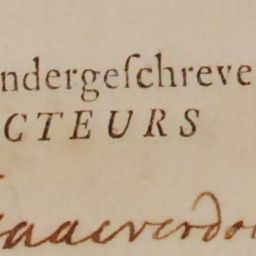 ndergeſchreve
CTEURS
Isaacverdon